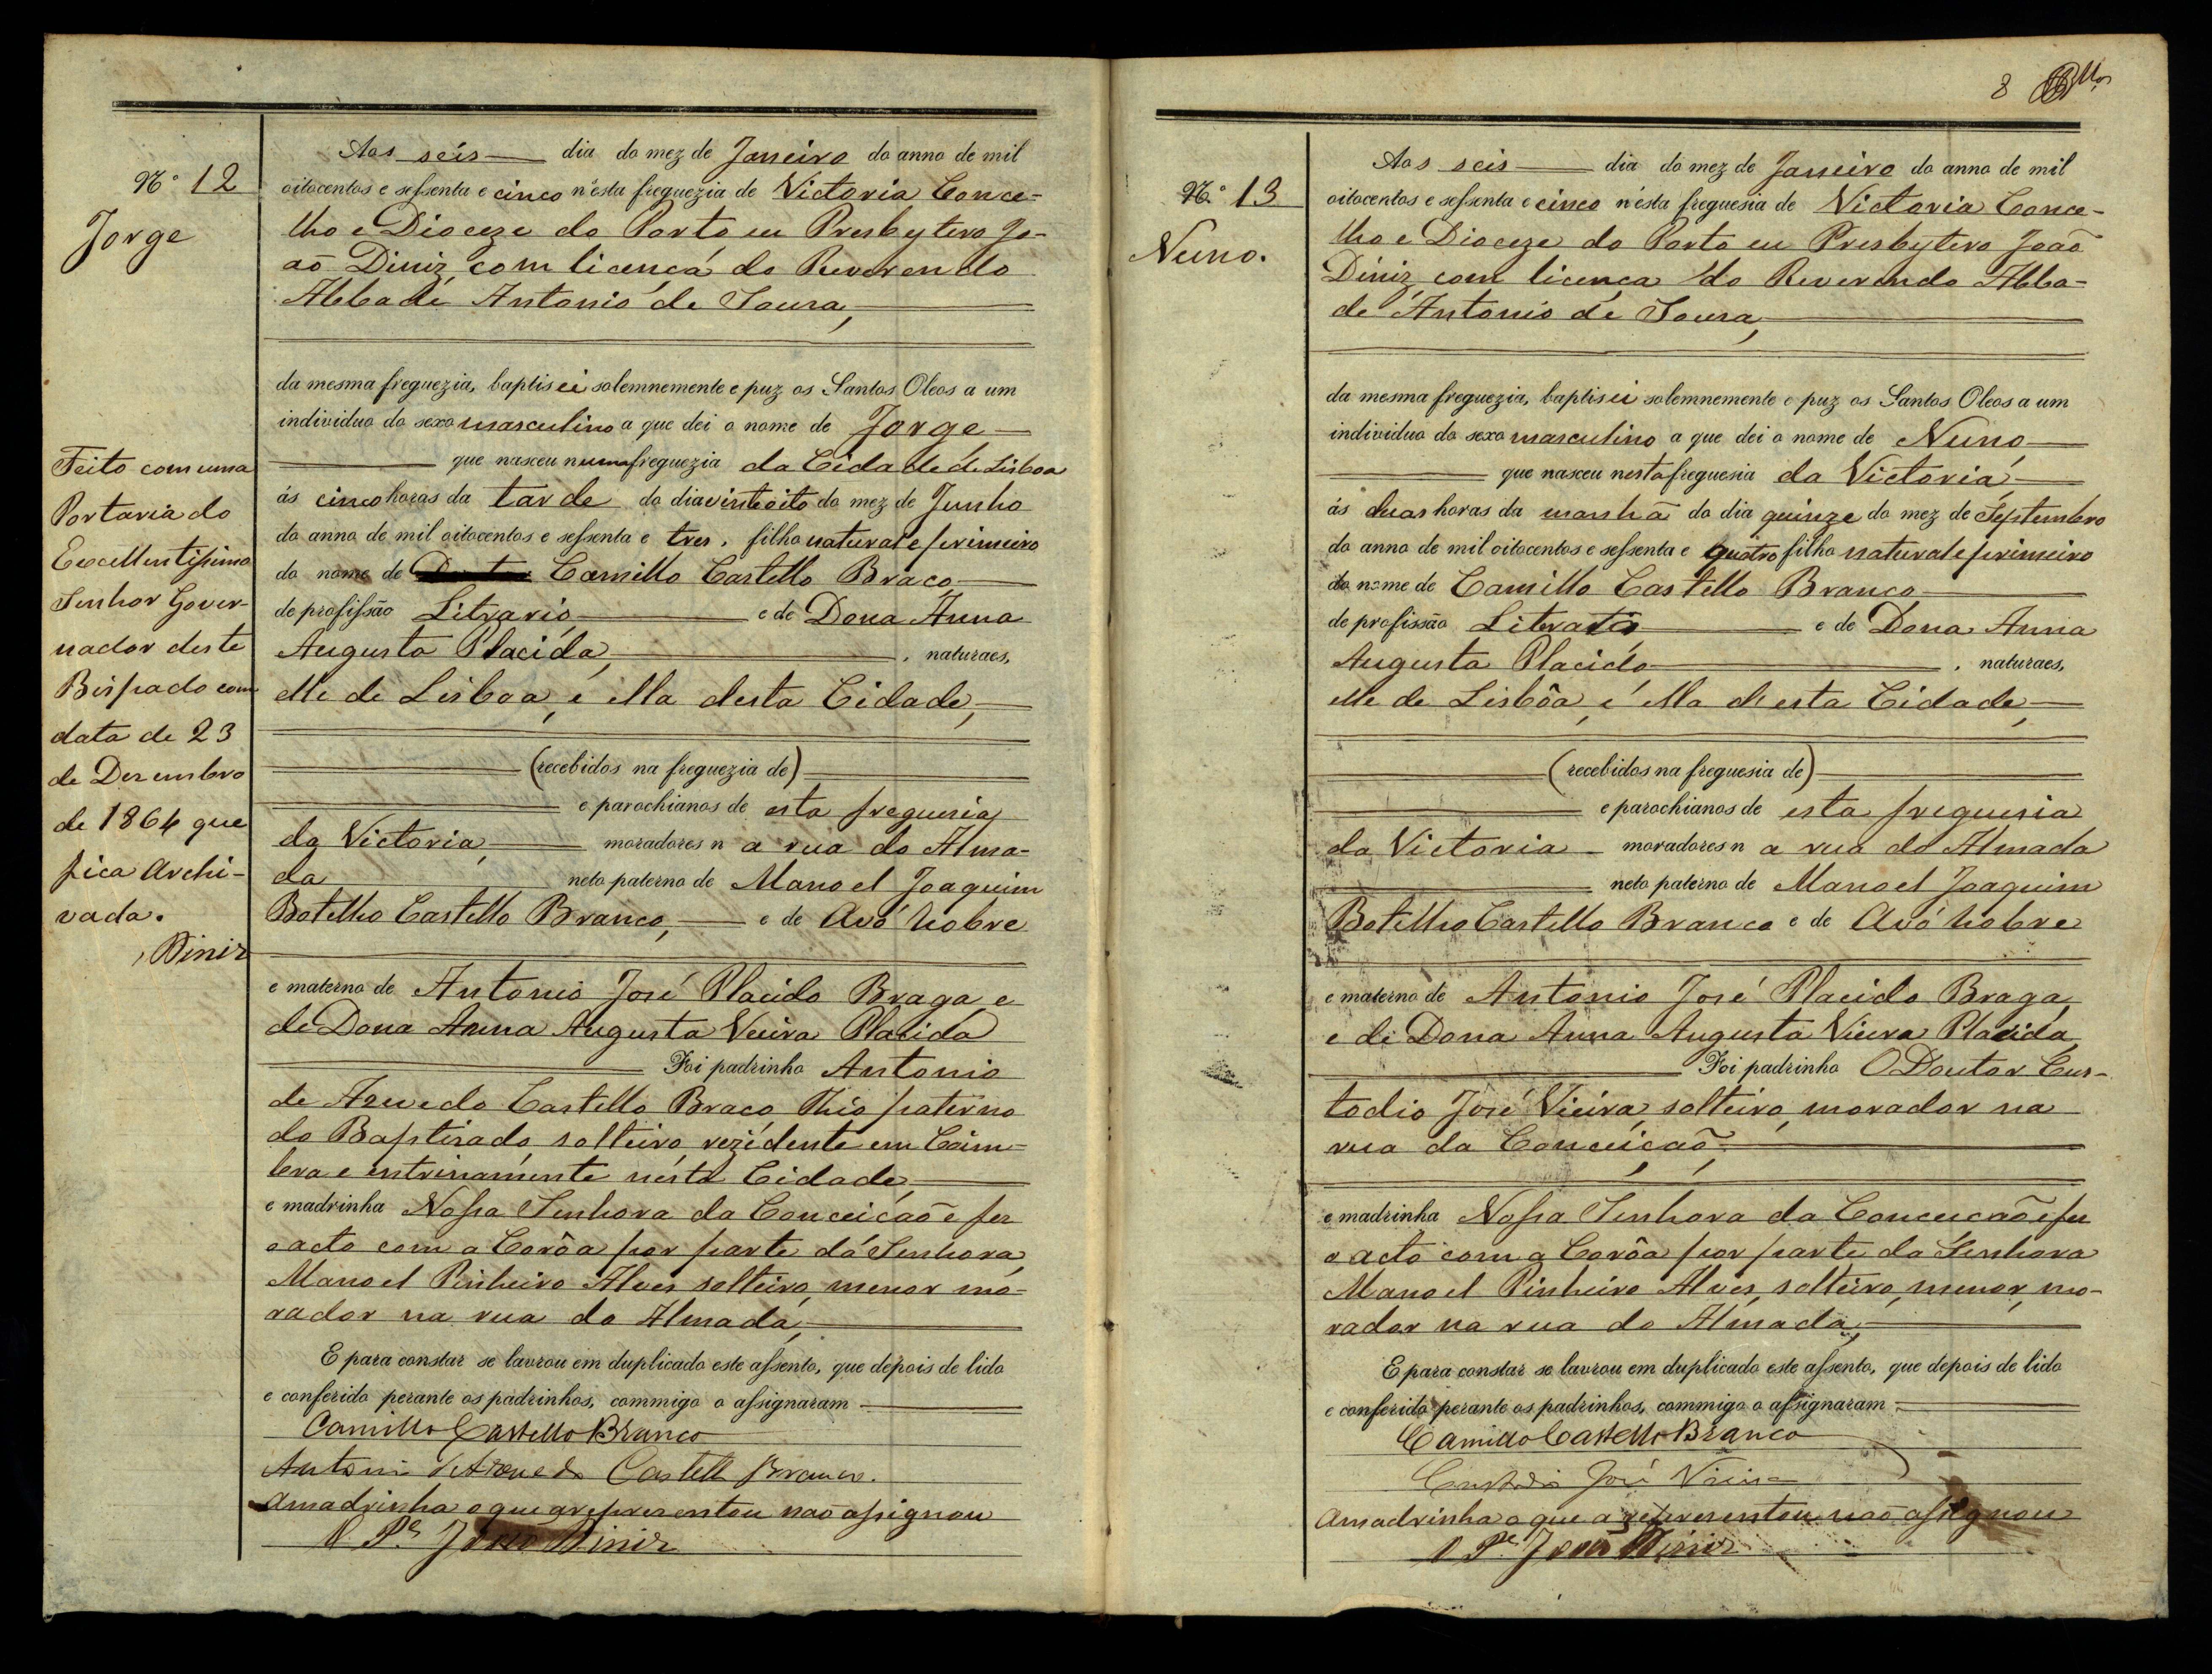 Nº 12
Jorge
Feito com uma
Portaria do
Excellentissimo
Senhor Gover-
nador deste
Bispado com
data de 23
de Dezembro
de 1864 que
fica archi-
vada.
Diniz
Aos seis dia do mez de Janeiro do anno de mil
oitocentos e sessenta e cinco n'esta freguezia de Victoria Conce-
lho e Dioceze do Porto eu Presbytero Jo-
aõ Diniz, com licença do Reverendo
Abbade Antonio de Souza,
da mesma freguezia, baptisei solemnemente e puz os Santos Oleos a um
individuo do sexo masculino a que dei o nome de Jorge
que nasceu numa freguezia da Cidade de Lisboa
ás cinco horas da tarde do dia vinte oito do mez de Junho
do anno de mil oitocentos e sessenta e tres, filho natural e primeiro
do nome de Camillo Castello Braco
de profissão Litrario e de Dona Anna
Augusta Placida, naturaes,
elle de Lisboa, e ella desta Cidade,
(recebidos na freguezia de)
e parochianos de esta freguesia
da Victoria, moradores n a rua do Alma-
da neto paterno de Manoel Joaquim
Botelho Castello Branco, e de Avó nobre
e materno de Antonio José Placido Braga e
de Dona Anna Augusta Vieira Placida
Foi padrinho Antonio
de Azevedo Castello Braco, Thio paterno
do Baptisado, solteiro, rezidente em Coim-
bra e entrinamente nésta Cidade,
e madrinha Nossa Senhora da Conceicaõ e fez
o acto com a Corôa por parte da Senhora,
Manoel Pinheiro Alves solteiro, menor mo-
rador na rua do Almada,
E para constar se lavrou em duplicado este assento, que depois de lido
e conferido perante os padrinhos, commigo o assignaram
Camillo Castello Branco
Antonio d'Azevedo Castello Branco.
A madrinha o que a representou naõ assignou
O Pe. João Diniz
8
Nº 13
Nuno.
Aos seis dia do mez de Janeiro do anno de mil
oitocentos e sessenta e cinco n'esta freguesia de Victoria Conce-
lho e Dioceze do Porto eu Presbytero Joaõ
Diniz, com licença do Reverendo Abba-
de Antonio de Souza,
da mesma freguezia, baptisei solemnemente e puz os Santos Oleos a um
individuo do sexo masculino a que dei o nome de Nuno
que nasceu nesta freguesia da Victoria,
ás duas horas da manhã do dia quinze do mez de Septembro
do anno de mil oitocentos e sessenta e quatro filho natural e primeiro
do nome de Camillo Castello Branco
de profissão Literato e de Dona Anna
Augusta Placido, naturaes,
elle de Lisbôa, e ella d'esta Cidade,
(recebidos na freguesia de)
e parochianos de esta freguesia
da Victoria moradores n a rua do Almada
neto paterno de Manoel Joaquim
Botelho Castello Branco e de Avó nobre
e materno de Antonio José Placido Braga,
e de Dona Anna Augusta Vieira Placida
Foi padrinho O Doutor Cus-
todio José Vieira, solteiro, morador na
rua da Conceicaõ,
e madrinha Nossa Senhora da Conceicaõ e fez
o acto com a Corôa por parte da Senhora
Manoel Pinheiro Alves, solteiro, menor, mo-
rador na rua do Almada,
E para constar se lavrou em duplicado este assento, que depois de lido
e conferido perante os padrinhos, commigo o assignaram
Camillo Castello Branco
Custodio José Vieira
A madrinha o que a representou naõ assignou
O Pe. João Diniz